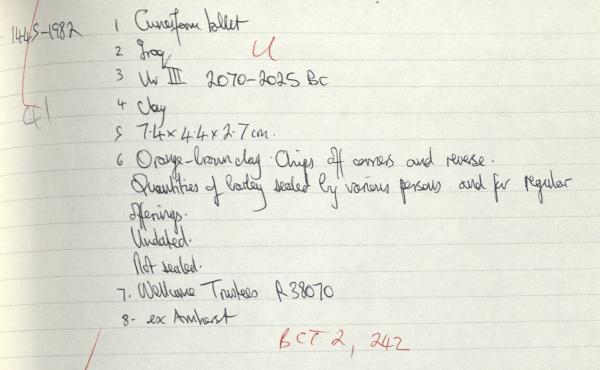 1445-1982 1 Cuneiform tablet
2 Iraq U
3 Ur III 2070-2025 BC
4 Clay
41
5 7.4 x 4.4 x 2.7 cm.
6 Orange-brown clay. Chips off corners and reverse.
Quantities of barley sealed by various persons and for regular
offerings.
Undated.
Not sealed.
7. Wellcome Trustees R38070
8- ex Amherst
BCT 2, 242